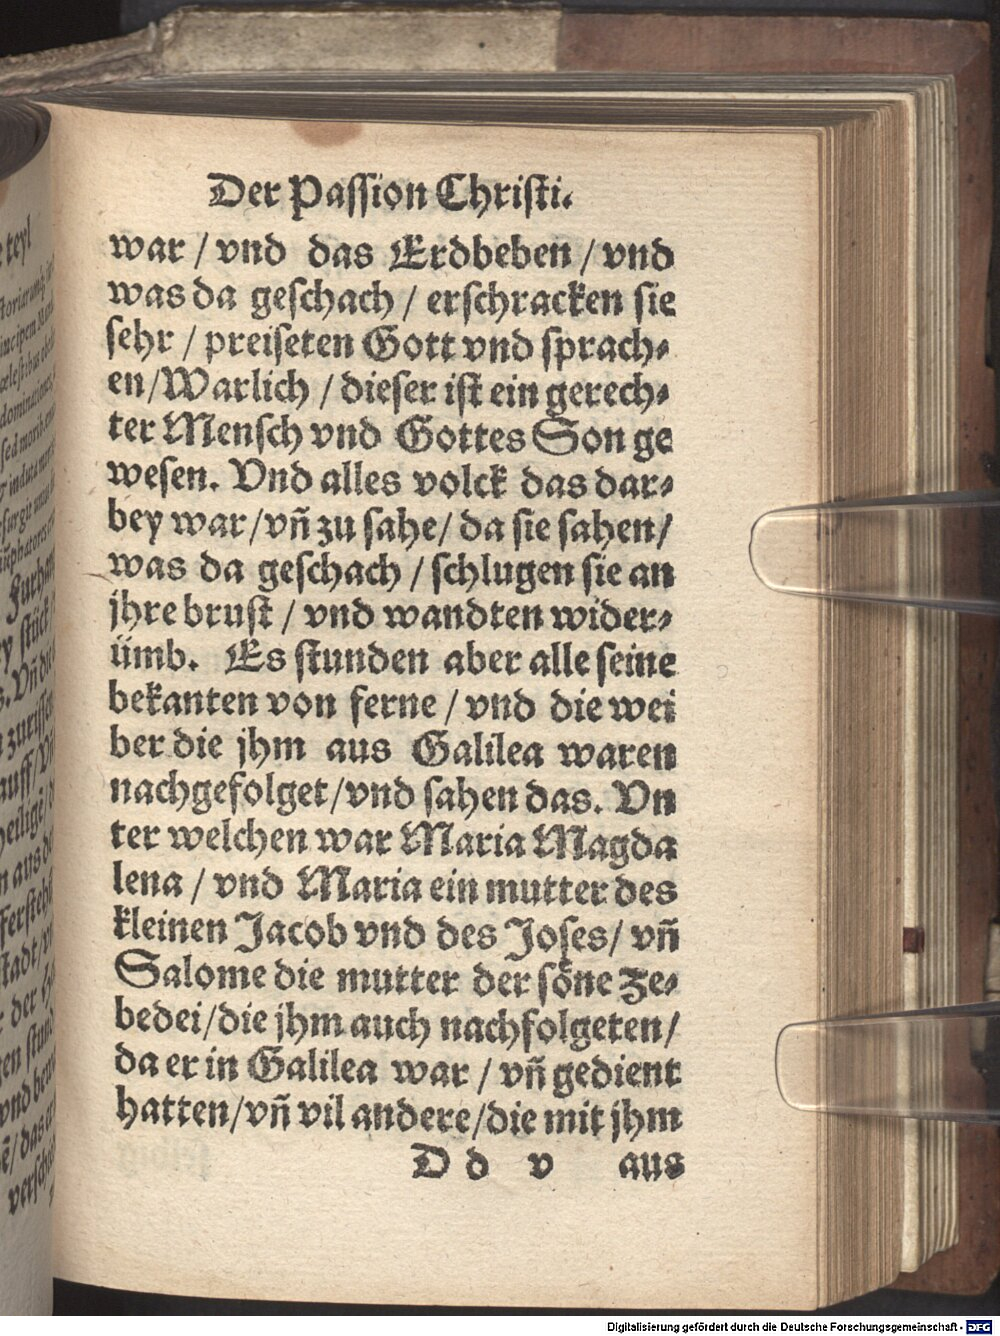 Der Passion Christi.
war / vnd das Erdbeben / vnd
was da geschach / erschracken sie
sehr / preiseten Gott vnd sprach⸗
en/Warlich / dieser ist ein gerech⸗
ter Mensch vnd Gottes Son ge
wesen. Vnd alles volck das dar⸗
bey war/vñ zu sahe/ da sie sahen/
was da geschach / schlugen sie an
jhre brust / vnd wandten wider⸗
ümb. Es stunden aber alle seine
bekanten von ferne / vnd die wei
ber die jhm aus Galilea waren
nachgefolget/vnd sahen das. Vn
ter welchen war Maria Magda
lena / vnd Maria ein mutter des
kleinen Jacob vnd des Joses/ vñ
Salome die mutter der söne Ze⸗
bedei/die jhm auch nachfolgeten/
da er in Galilea war / vñ gedient
hatten/vñ vil andere/die mit jhm
D d v aus
teyl
stück
zuriss
auff/
heilige/
aus
stadt/
der
vnd
das
Digitalisierung gefördert durch die Deutsche Forschungsgemeinschaft - DFG